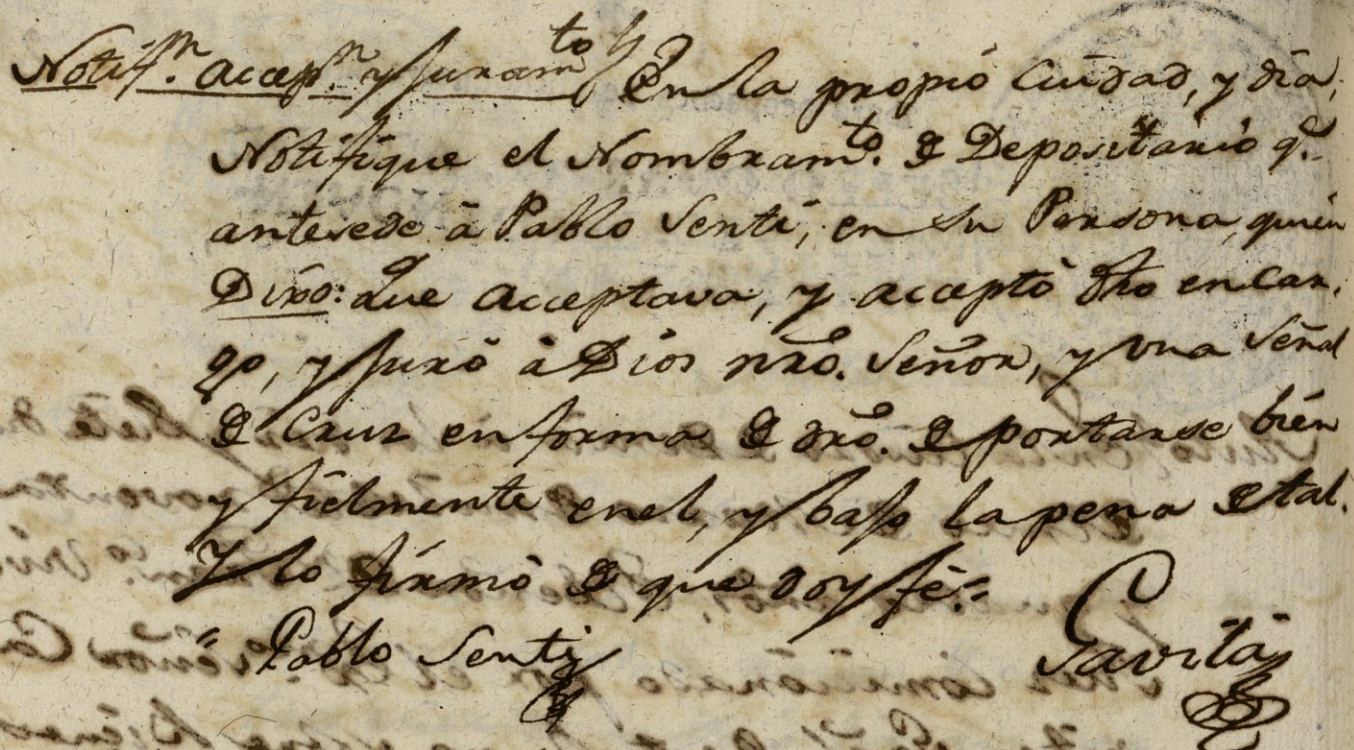 Notifn. accepn. y Juramto. En la propió Ciudad, y dia,
Notifique el Nombramto. de Depositario qe.
antesede à Pablo Senti, en su Persona, quien
Dixo: que acceptava, y acceptò dho encar,
go, y Juró à Dios nro. Señor, y vna Señal
de Cruz en forma de dro. de portarse bien
y fielmente en el, y bajo la pena de tal.
Y lo firmò de que doy fè.=
= Pablo Senti Gavilá